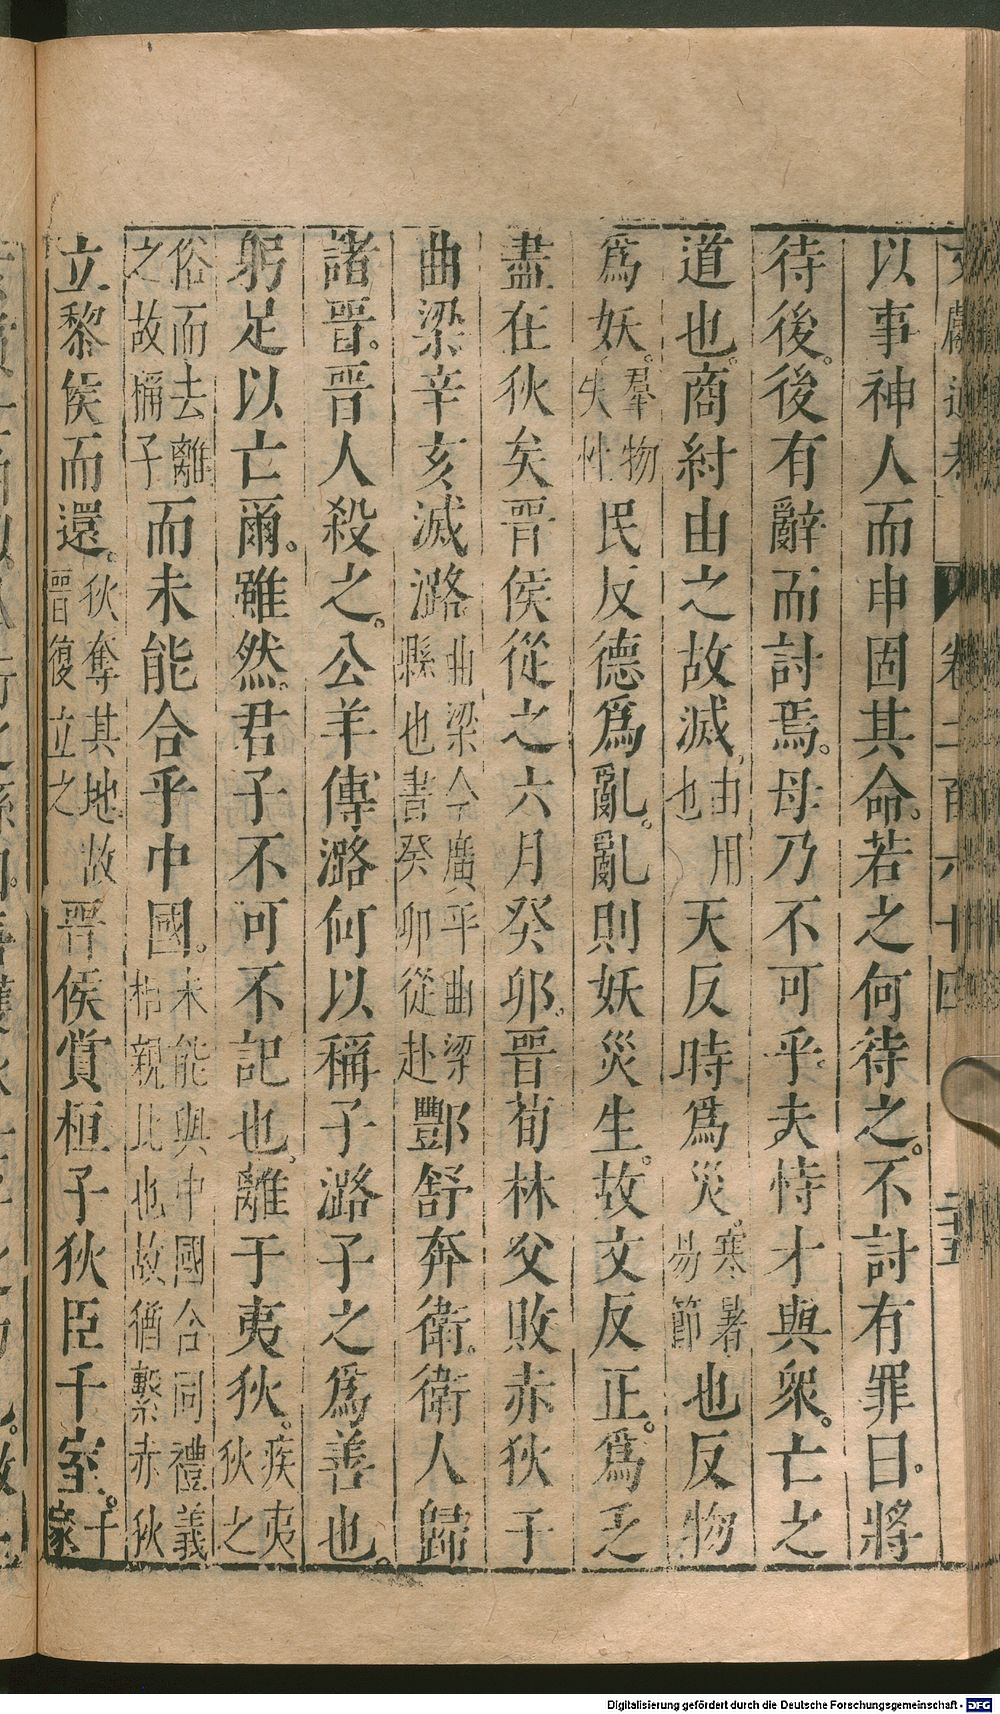 文獻通考 卷二百六十四 二十五
以事神人而申固其命。若之何待之。不討有罪曰。將
待後。後有辭而討焉。毋乃不可乎。夫恃才與衆。亡之
道也。商紂由之故滅。由用也 天反時爲災。寒暑易節也反物
爲妖。羣物失性 民反德爲亂。亂則妖災生。故文反正。爲乏
盡在狄矣晉侯從之六月癸卯。晉荀林父敗赤狄于
曲梁。辛亥滅潞曲梁今廣平曲梁縣也書癸卯從赴酆舒奔衛。衛人歸
諸晉。晉人殺之。公羊傳潞何以稱子潞子之爲善也。
躬足以亡爾。雖然。君子不可不記也。離于夷狄。疾夷狄之
俗而去離之故稱子而未能合乎中國。未能與中國合同禮義相親比也故猶繫赤狄
立黎侯而還。狄奪其地故晉復立之晉侯賞桓子狄臣千室。千家
Digitalisierung gefördert durch die Deutsche Forschungsgemeinschaft - DFG